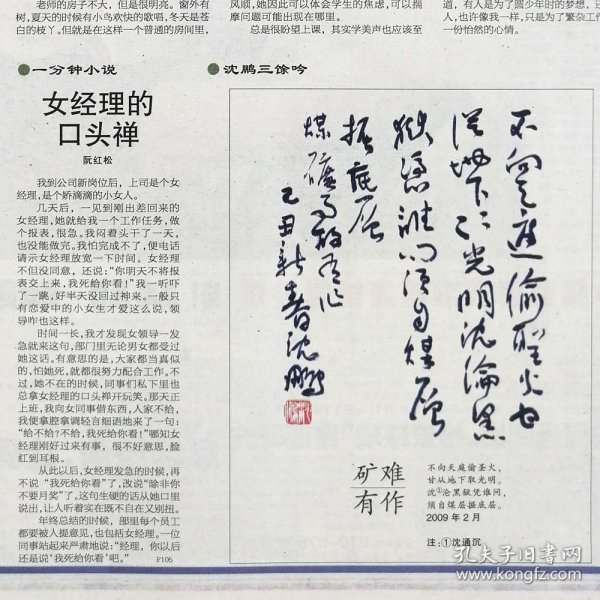 老师的房子不大，但是很明亮。窗外有
树，夏天的时候有小鸟欢快的歌唱，冬天是苍
白的枝丫。但就是在这样一个普通的房间里，
风顺，她因此可以体会学生的焦虑，可以揣
摩问题可能出现在哪里。
总是很盼望上课，其实学美声也应该至
道，有人是为了圆少年时的梦想，还
人，也许像我一样，只是为了繁杂工作
一份怡然的心情。
●一分钟小说
女经理的
口头禅
阮红松
我到公司新岗位后，上司是个女
经理，是个娇滴滴的小女人。
几天后，一见到刚出差回来的
女经理，她就给我一个工作任务，做
个报表，很急。我闷着头干了一天，
也没能做完。我怕完成不了，便电话
请示女经理放宽一下时间。女经理
不但没同意，还说：“你明天不将报
表交上来，我死给你看！”我一听吓
了一跳，好半天没回过神来。一般只
有恋爱中的小女生才爱这么说，领
导咋也这样。
时间一长，我才发现女领导一发
急就来这句，部门里无论男女都受过
她这话。有意思的是，大家都当真似
的，怕她死，就都很努力配合工作。不
过，她不在的时候，同事们私下里也
总拿女经理的口头禅开玩笑。那天正
上班，我向女同事借东西，人家不给，
我便拿腔拿调轻言细语地来了一句：
“给不给？不给，我死给你看！”哪知女
经理刚好过来有事，很不好意思，脸
红到耳根。
从此以后，女经理发急的时候，再
不说“我死给你看”了，改说“除非你
不要月奖”了。这句生硬的话从她口里
说出，让人听着实在既不自在又别扭。
年终总结的时候，部里每个员工
都要被人提意见，也包括女经理。一位
同事站起来严肃地说：“经理，你以后
还是说‘我死给你看’吧。”
F105
●沈鹏三馀吟
不向天庭偷圣火甘
从地下取光明沈沦黑
狱凭谁问须自煤层
掘底层
煤矿难有作
己丑新春沈鹏
矿难
有作
不向天庭偷圣火，
甘从地下取光明。
沈①沦黑狱凭谁问，
须自煤层掘底层。
2009年2月
注：①沈通沉
孔夫子旧书网
www.kongfz.com